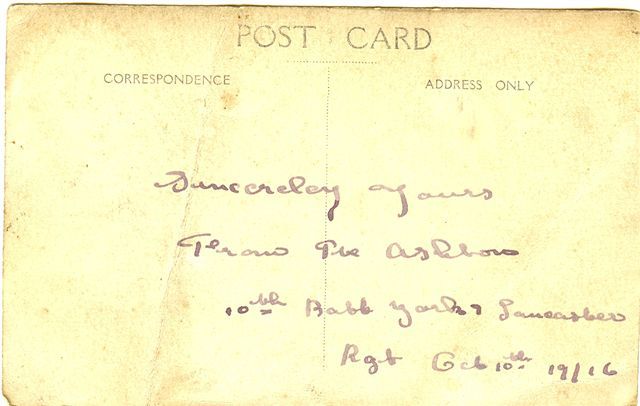 POST CARD
CORRESPONDENCE
ADDRESS ONLY
Suncereley Yours
From Pte Ashbow
10th Batt York & Lancaster
Rgt Oct 10th 19/16